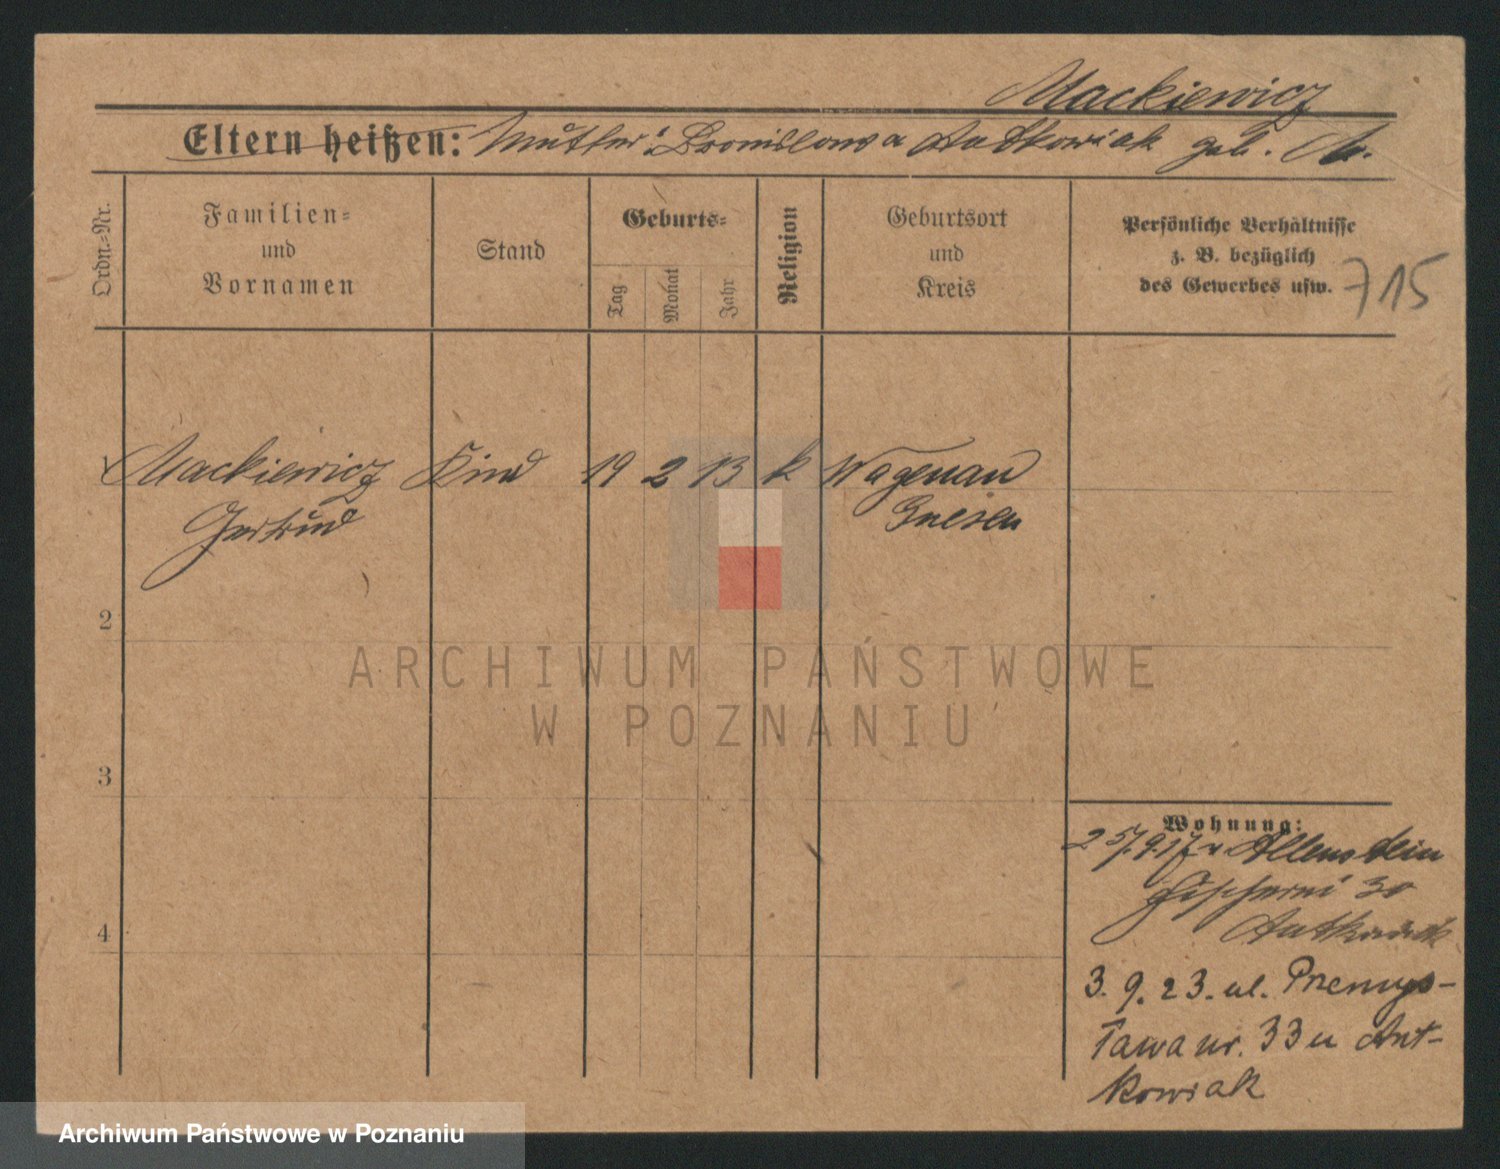 Mackiewicz
Eltern heißen: Mutter: Bronislawa Antkowiak geb. M.
Ordn=Nr.
Familien=
und
Vornamen
Stand
Geburts=
Tag
Monat
Jahr
Religion
Geburtsort
und
Kreis
Persönliche Verhältnisse
z. B. bezüglich
des Gewerbes usw.
715
1 Mackiewicz Kind 19 2 13 k Wagenau
Gertrud Gnesen
2
3
4
Wohnung:
25/9.17 v Allenstein
Fischerei 30
Antkowiak
3. 9. 23. ul. Przemys-
ława nr. 33 u Ant-
kowiak
ARCHIWUM PAŃSTWOWE
W POZNANIU
Archiwum Państwowe w Poznaniu